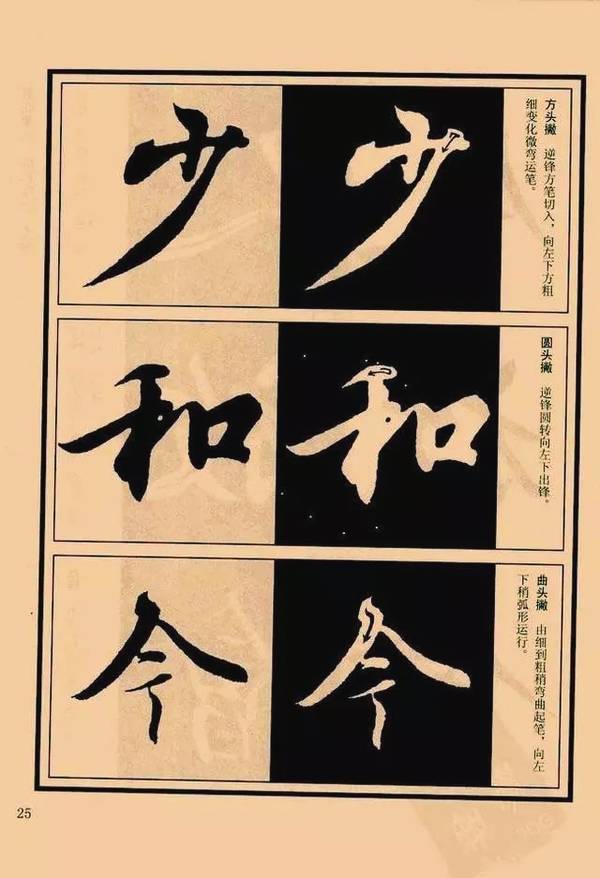 少 少
方头撇 逆锋方笔切入，向左下方粗
细变化微弯运笔。
和 和
圆头撇 逆锋圆转向左下出锋。
今 今
曲头撇 由细到粗稍弯曲起笔，向左
下稍弧形运行。
25